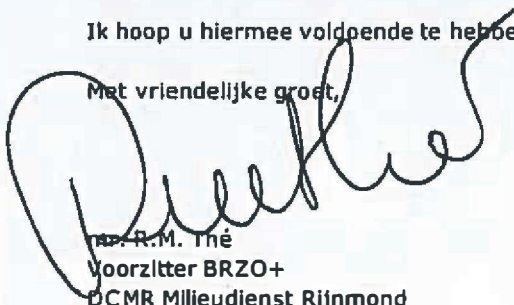 Ik hoop u hiermee voldoende te hebbe
Met vriendelijke groet,
mr. R.M. Thé
Voorzitter BRZO+
DCMR Milieudienst Rijnmond